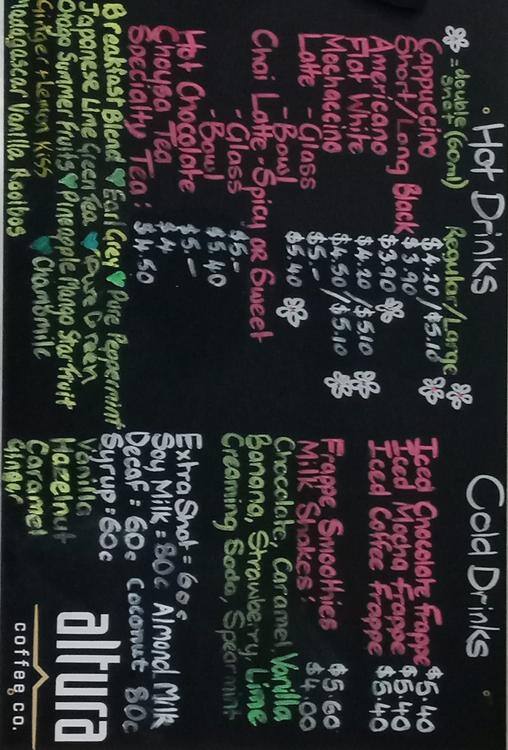 Hot Drinks
= double shot (60ml) Regular/Large
Cappuccino $4.20/$5.10
Short/Long Black $3.90
Americano $3.90
Flat White $4.20/$5.10
Mochaccino $4.50/$5.10
Latte - Glass $5.-
- Bowl $5.40
Chai Latte - Spicy or Sweet
- Glass $5.-
- Bowl $5.40
Hot Chocolate $5.-
Choysa Tea $4
Specialty Tea: $4.50
Breakfast Blend Earl Grey Pure Peppermint
Japanese Lime Green Tea Pure Green
Otago Summer Fruits Pineapple Mango Starfruit
Ginger + Lemon Kiss Chamomile
Madagascar Vanilla Rooibos
Cold Drinks
Iced Chocolate Frappe $5.40
Iced Mocha Frappe $5.40
Iced Coffee Frappe $5.40
Frappe Smoothies $5.60
Milk Shakes: $4.00
Chocolate, Caramel, Vanilla
Banana, Strawberry, Lime
Creaming Soda, Spearmint
Extra Shot = 60c
Soy Milk = 80c Almond Milk
Decaf = 60c Coconut 80c
Syrup: 60c
Vanilla
Hazelnut
Caramel
Ginger
altura
coffee.co.